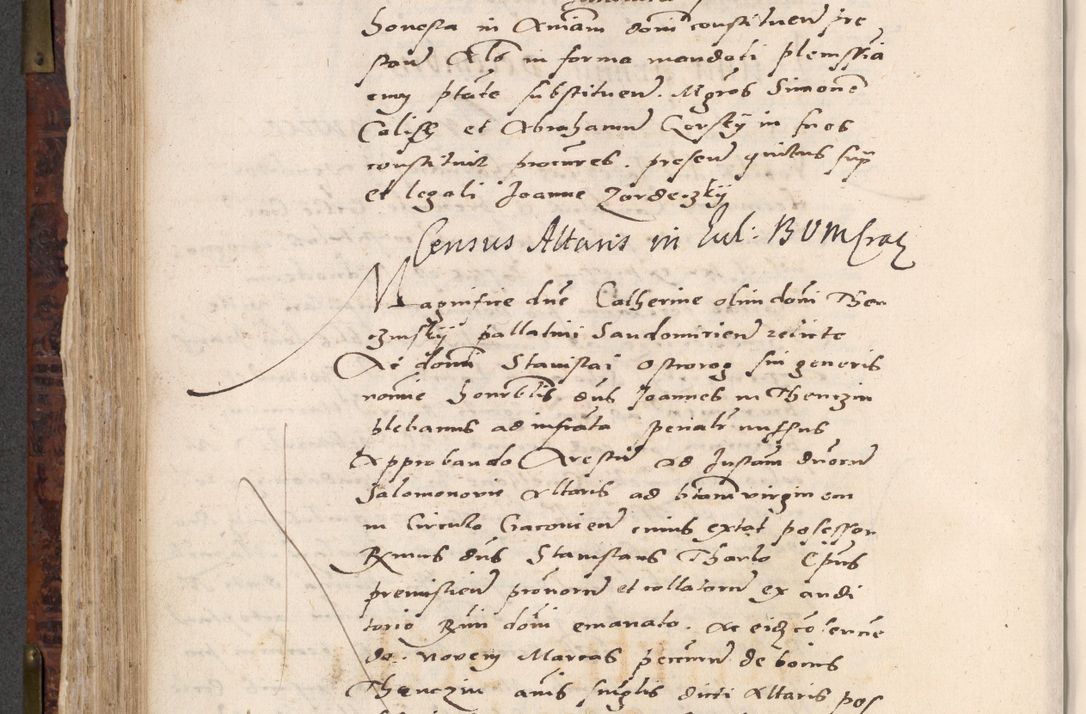 honesta in Aniam domi constituen pre
stau Alo in forma mandati plenissia
emq ptate substituen. Mgros Simonē
Calisz et Abrahamu Gorsky in suos
constituit procures. presen quibus sup
et legali Joanne Zordeczky
Census Altaris in Eccl: BVM Crac
Magnifice dne Catherine olim domi Then
czinskij pallatini Sandomirien relicte
Ac domi Stanislai Ostrorog sui generis
nomine honorblis dns Joannes in Thenczin
plebanus ad infrata penali iussus
Approbando Arestu ad Instam duoru
Salomonowi Altaris ad btam virginem
in Circulo Cracovien cuius extat possessor
Rmus dns Stanislaus Tharlo Epus
premislien provoru et collatoru ex audi
torio Rmi domi emanato. Ac eidz coherene
do. novem Marcas pecuru de bonis
Thenczin anis singlis dicti Altaris pos